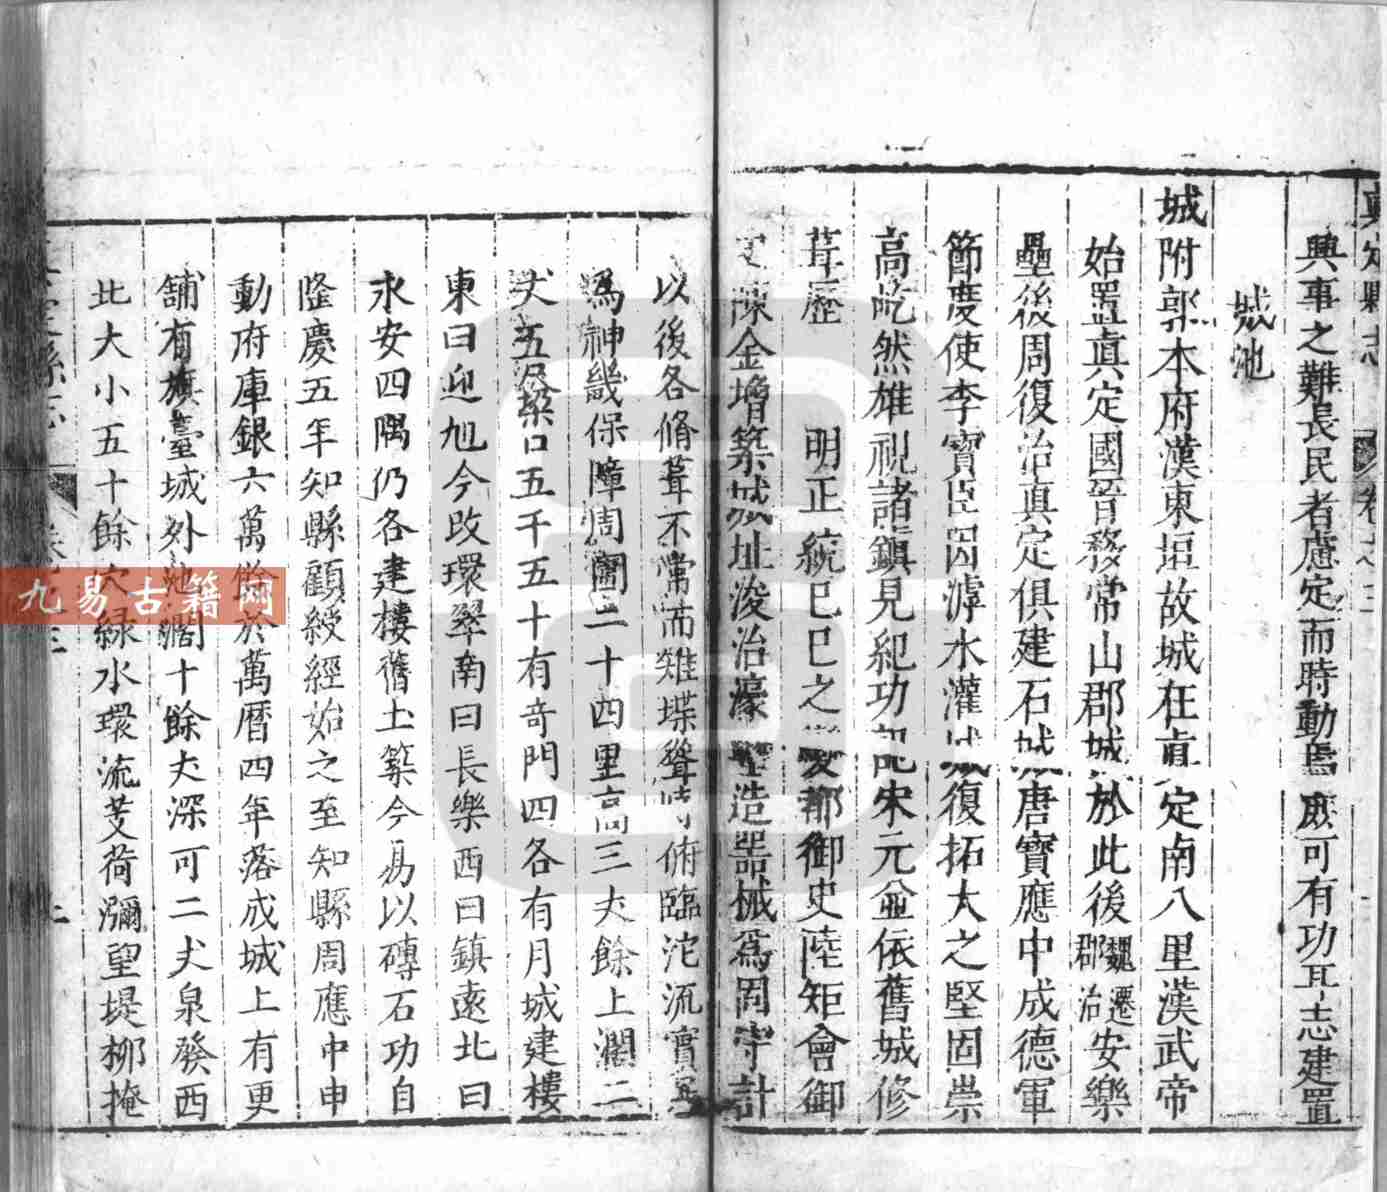 真定縣志
卷之三
興事之難長民者慮定而時動焉庶可有功耳志建置
城池
城附郭本府漢東垣故城在真定南八里漢武帝
始置真定國晉移常山郡城於此後魏遷郡治安樂
壘後周復治真定俱建石城唐寶應中成德軍
節度使李寶臣因滹水灌城復拓大之堅固崇
高屹然雄視諸鎮見紀功記宋元並依舊城修
葺歷 明正統己巳之變都御史陸矩會御
史陳金增築城址浚治濠塹造器械為固守計
以後各脩葺不常而雉堞聳峙俯臨沱流實
為神畿保障周圍二十四里高三丈餘上濶二
丈五尺垛口五千五十有奇門四各有月城建樓
東曰迎旭今改環翠南曰長樂西曰鎮遠北曰
永安四隅仍各建樓舊土築今易以磚石功自
隆慶五年知縣顧綬經始之至知縣周應中申
動府庫銀六萬餘於萬曆四年落成城上有更
舖有旗臺城外池濶十餘丈深可二丈泉發西
北大小五十餘穴綠水環流芰荷瀰望堤柳掩
九易古籍网